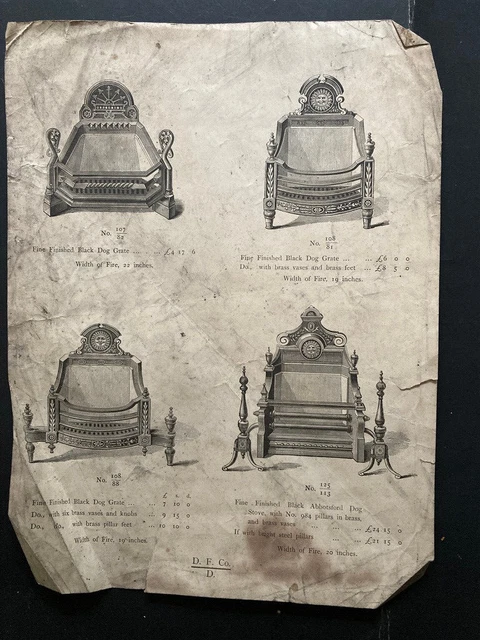 No. 107/82
Fine Finished Black Dog Grate ... ... £4 17 6
Width of Fire, 22 inches.
No. 108/81
Fine Finished Black Dog Grate ... ... £6 0 0
Do., with brass vases and brass feet ... £8 5 0
Width of Fire, 19 inches.
No. 108/88
£ s. d.
Fine Finished Black Dog Grate ... ... 7 10 0
Do., with six brass vases and knobs ... 9 15 0
Do., do., with brass pillar feet ... 10 10 0
Width of Fire, 19 inches.
No. 125/113
Fine Finished Black Abbotsford Dog
Stove, with No. 984 pillars in brass,
and brass vases ... ... ... £24 15 0
If with bright steel pillars ... ... £21 15 0
Width of Fire, 20 inches.
D. F. Co.
D.